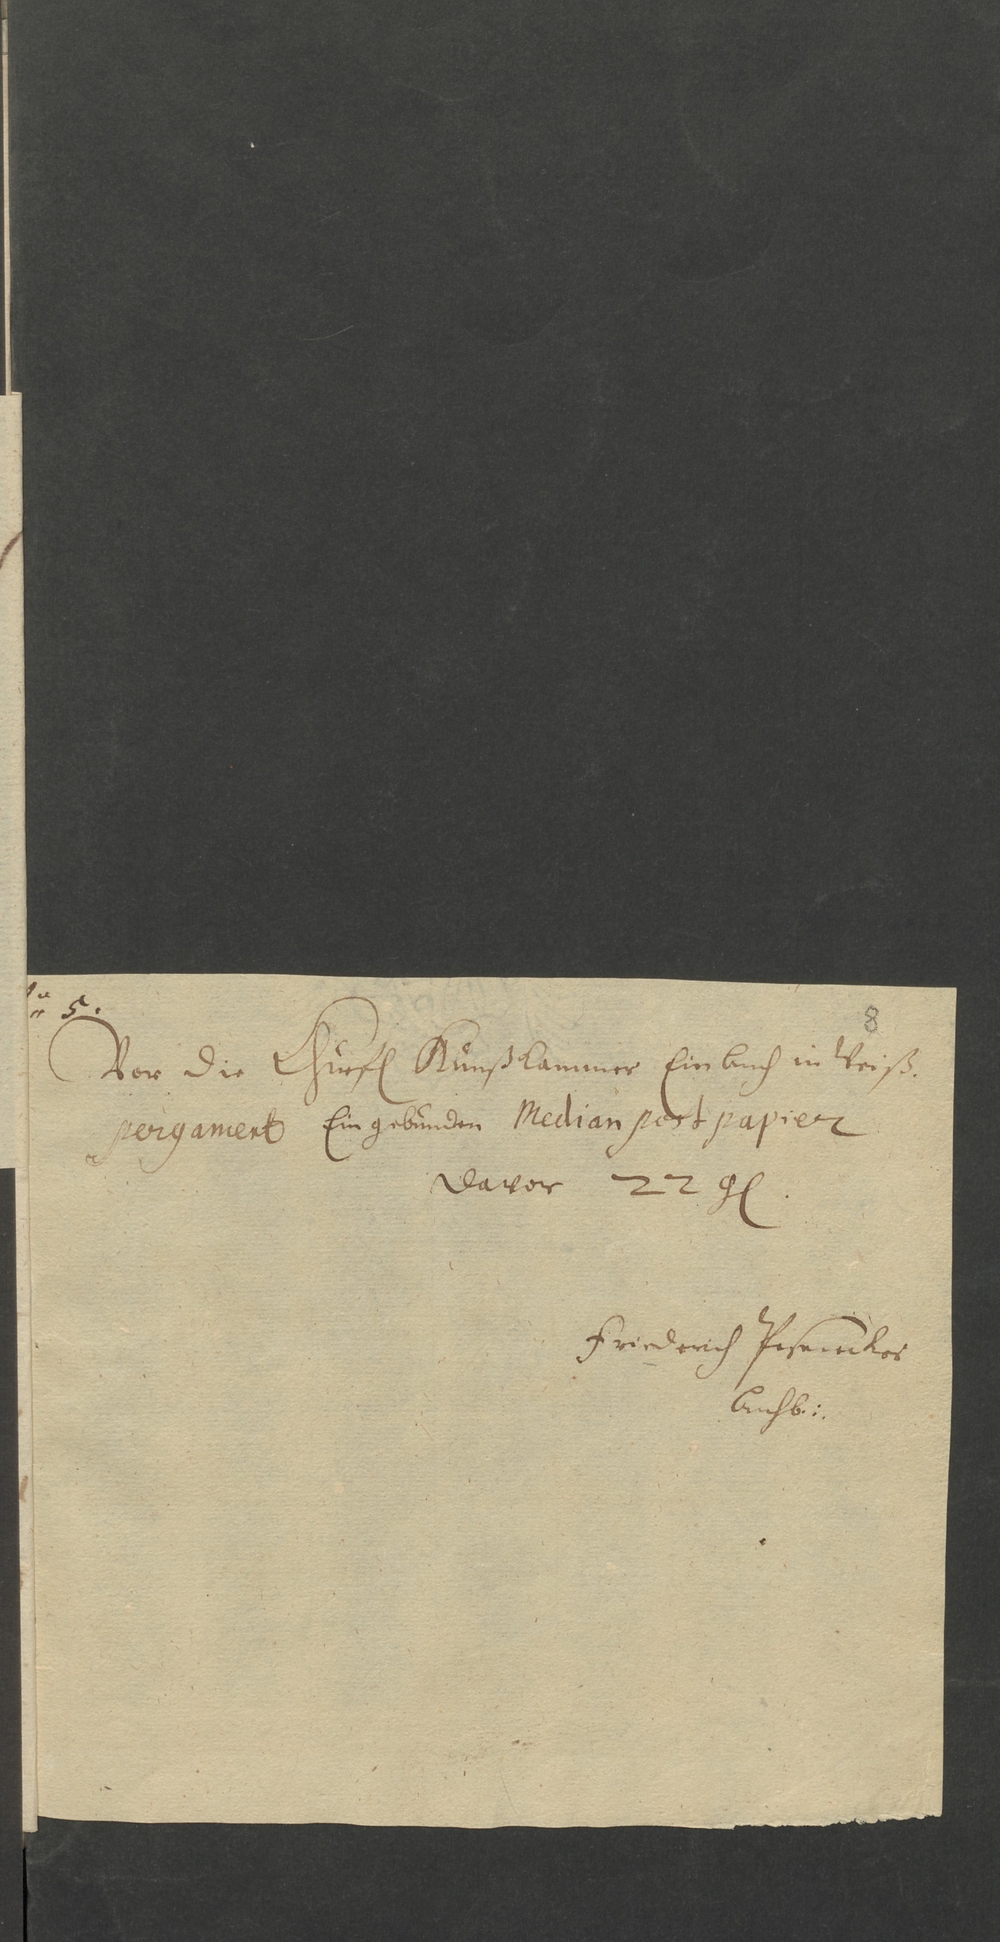 5.
8
Vor die Churfl Kunst Cammer Ein buch in Weiß.
pergament Ein gebunden Median post papier
davor 22 gl.
Friederich
buchb:.